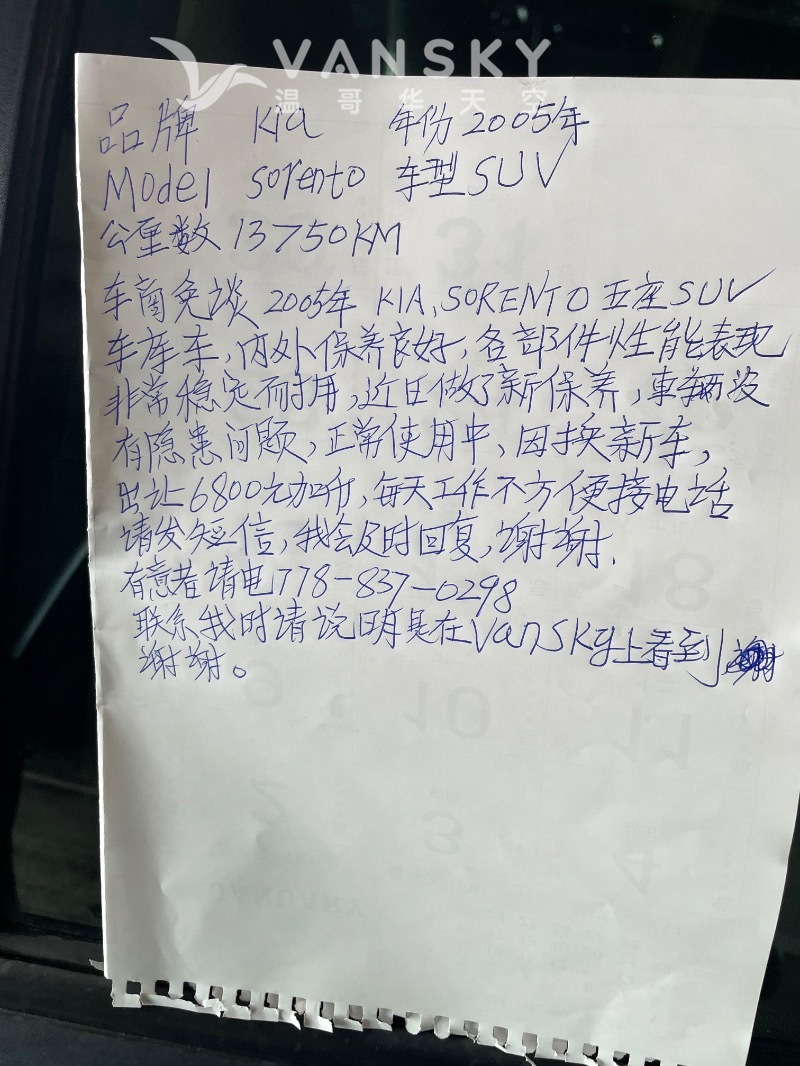 VANSKY
温哥华天空
品牌 Kia 年份 2005年
Model Sorento 车型 SUV
公里数 13750KM
车商免谈 2005年 KIA, SORENTO 五座SUV
车库车,内外保养良好,各部件性能表现
非常稳定而耐用,近日做了新保养,車辆没
有隐患问题,正常使用中、因换新车,
出让6800元加币,每天工作不方便接电话
请发短信,我会及时回复,谢谢.
有意者请电778-837-0298
联系我时请说明是在VanSky上看到
谢谢。